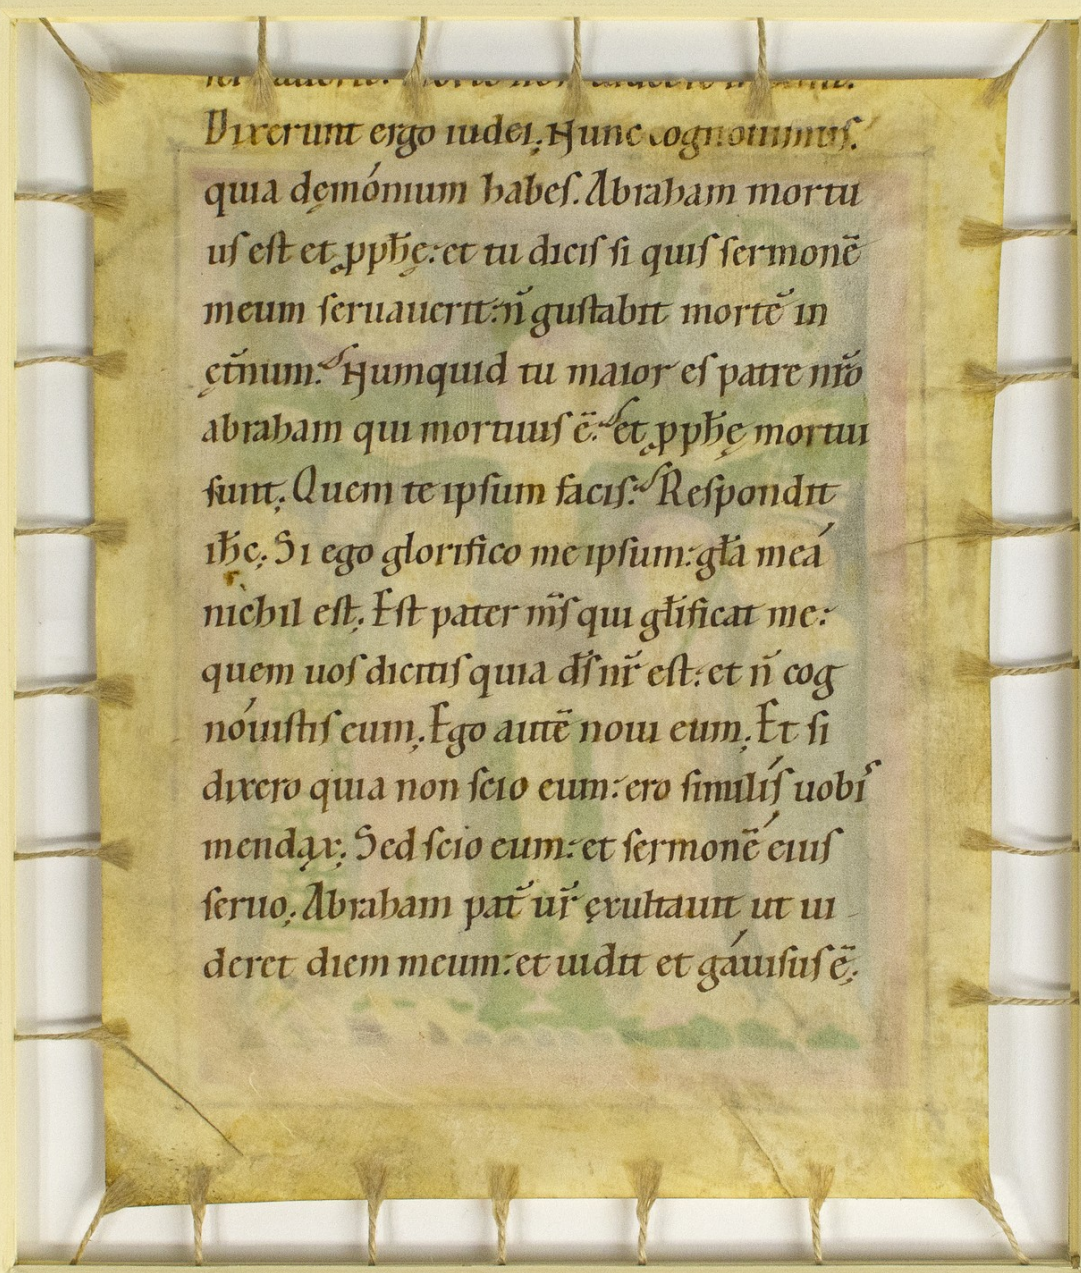 Dixerunt ergo iudei; Nunc cognouimus.
quia dęmónium habes. Abraham mortu
us est et ꝓph̄ę: et tu dicis si quis sermonē
meum seruauerit: n̄ gustabit mortē in
ęt̄num. Numquid tu maior es patre nr̄o
abraham qui mortuus ē. et ꝓph̄ę mortui
sunt; Quem te ipsum facis. Respondit
ih̄c; Si ego glorifico me ipsum: gl̄a meá
nichil est; Est pater m̄s qui gl̄ificat me:
quem uos dicitis quia d̄s nr̄ est: et n̄ cog
nóuistis eum; Ego autē noui eum; Et si
dixero quia non scio eum: ero similís uobis
mendąx; Sed scio eum: et sermonē éius
seruo; Abraham pat̄ ur̄ ęxultauit ut ui
deret diem meum: et uidit et gáuisus ē;